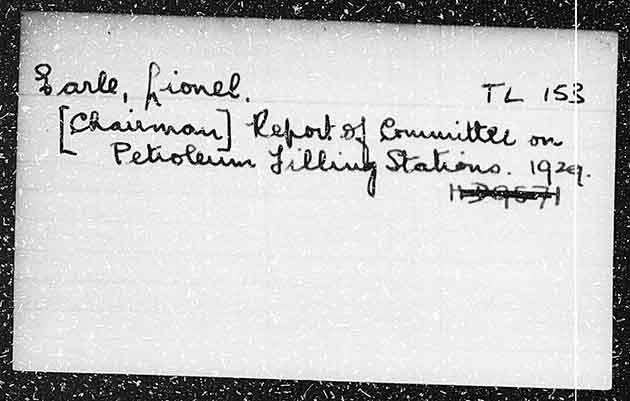 Earle, Lionel. TL 153
[Chairman] Report of Committee on
Petroleum Filling Stations. 1929.